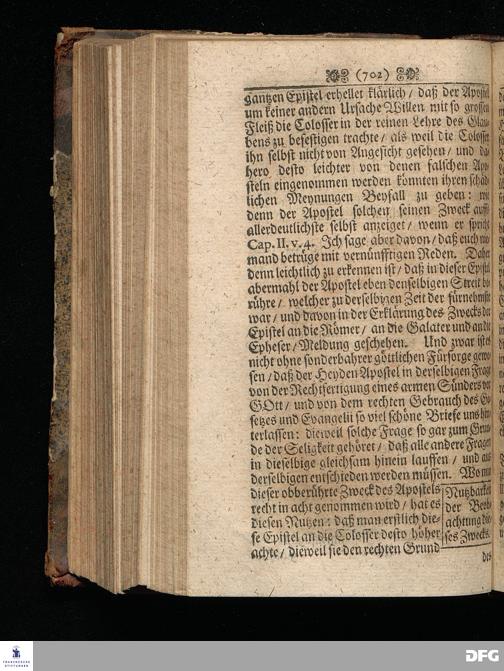 (702)
gantzen Epistel erhellet klärlich / daß der Apostel
um keiner andern Ursache Willen mit so grossen
Fleiß die Colosser in der reinen Lehre des Glau-
bens zu befestigen trachte / als weil die Colosser
ihn selbst nicht von Angesicht gesehen / und da-
hero desto leichter von denen falschen Apo-
steln eingenommen werden könnten ihren schäd-
lichen Meynungen Beyfall zu geben: wie
denn der Apostel solchen seinen Zweck auffs
allerdeutlichste selbst anzeiget / wenn er spricht
Cap. II. v. 4. Ich sage aber davon / daß euch nie-
mand betrüge mit vernünfftigen Reden. Daher
denn leichtlich zu erkennen ist / daß in dieser Epistel
abermahl der Apostel eben denselbigen Streit be-
rühre / welcher zu derselbigen Zeit der fürnehmste
war / und davon in der Erklärung des Zwecks der
Epistel an die Römer / an die Galater und an die
Epheser / Meldung geschehen. Und zwar ist es
nicht ohne sonderbahrer göttlichen Fürsorge gewe-
sen / daß der Heyden Apostel in derselbigen Frage
von der Rechtfertigung eines armen Sünders vor
GOtt / und von dem rechten Gebrauch des Ge-
setzes und Evangelii so viel schöne Briefe uns hin-
terlassen: dieweil solche Frage so gar zum Grun-
de der Seligkeit gehöret / daß alle andere Fragen
in dieselbige gleichsam hinein lauffen / und aus
derselbigen entschieden werden müssen. Wo nun
dieser obberührte Zweck des Apostels
recht in acht genommen wird / hat es
diesen Nutzen: daß man erstlich die-
se Epistel an die Colosser desto höher
achte / dieweil sie den rechten Grund
Nutzbarkeit
der Beob-
achtung die-
ses Zwecks.
des
FRANCKESCHE
STIFTUNGEN
DFG